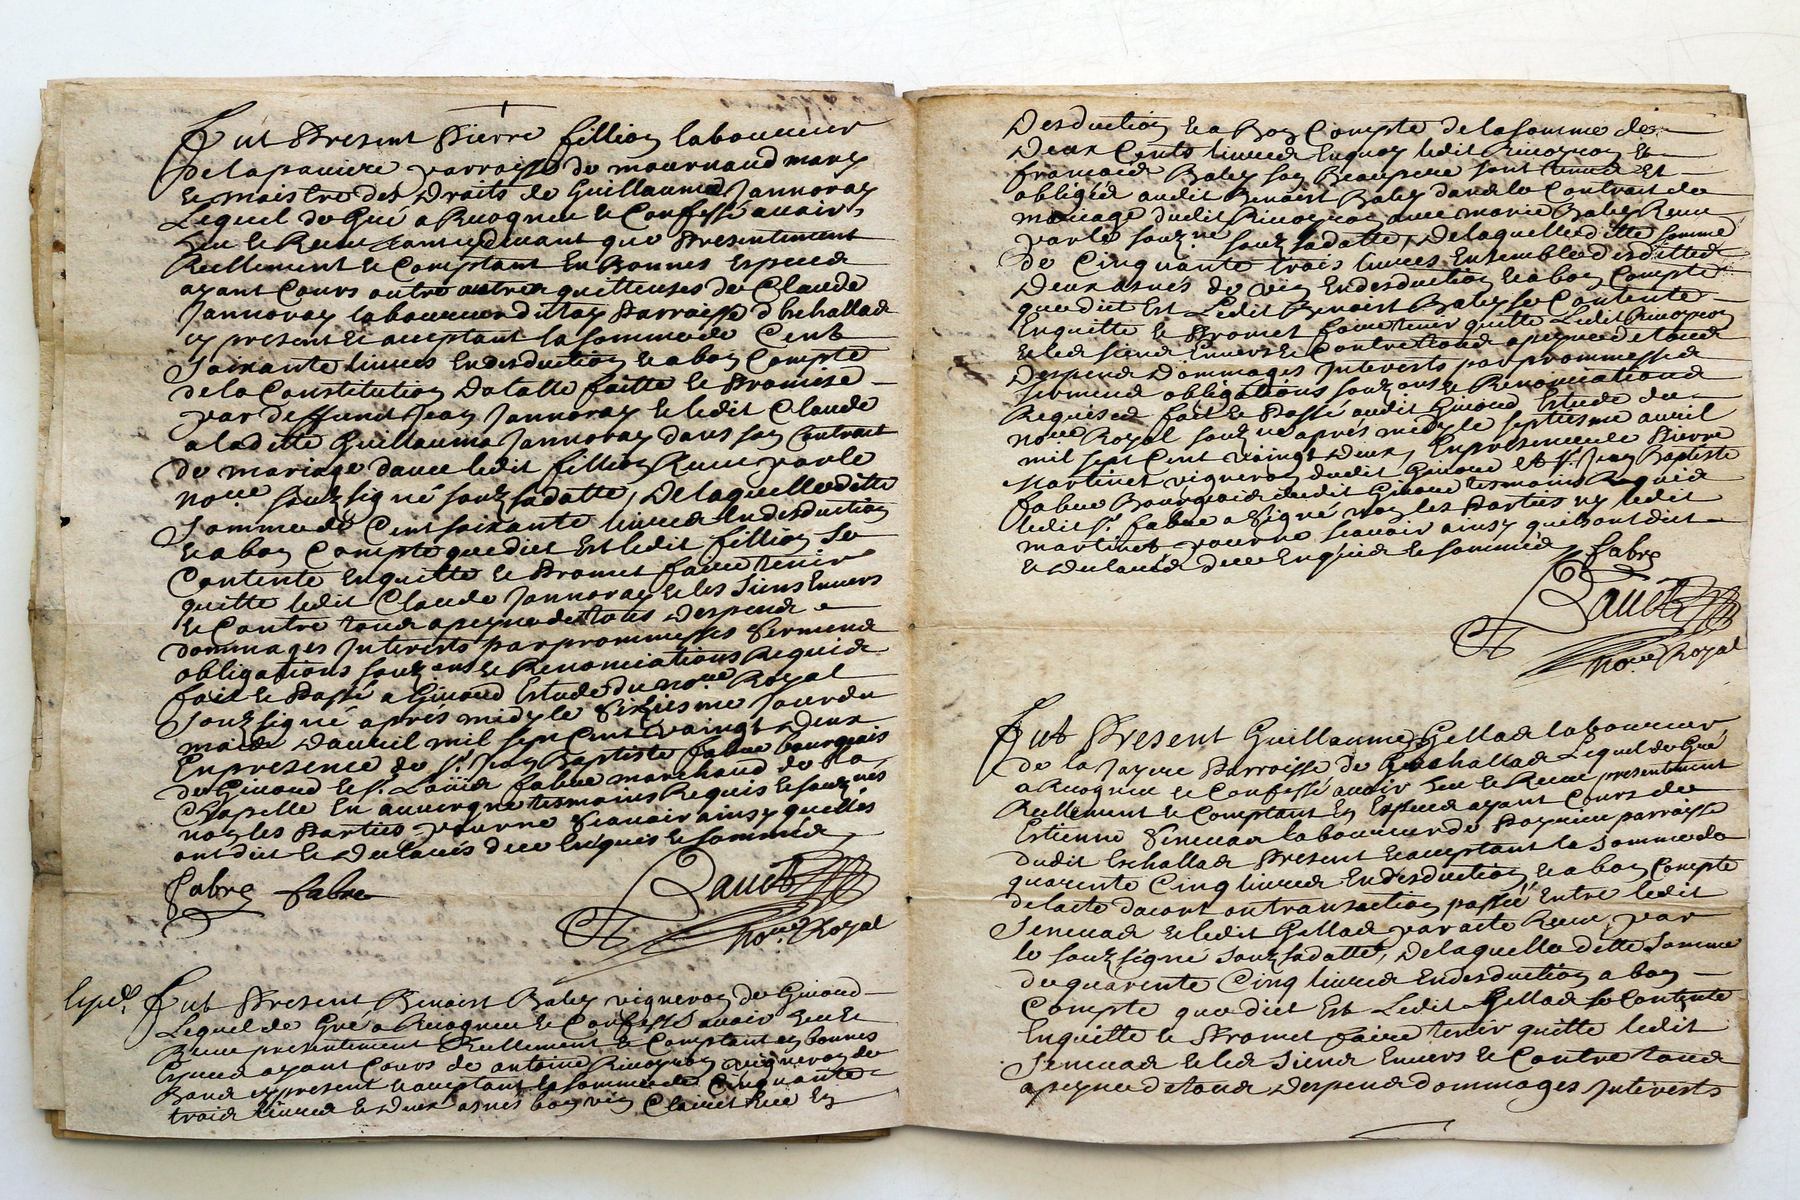 Fut Present Pierre fillion laboureur
de la paroisse de mournand mary
et maistre des Droits de Guillauma Jannoray
Lequel de Gré a Recogneu et Confessé avoir
heu et Receu cy devant que Presentement
Reellement et Comptant En Bonnes Especes
ayant Cours outre autres quittences de Claude
Jannoray laboureur dudit Parroisse d'Eschallas
cy present et acceptant la somme de Cent
Soixante livres En desduction et a bon Compte
de la Constitution Datalle faitte et Promise
par deffunct Jean Jannoray et ledit Claude
a laditte Guillauma Jannoray dans son Contrait
de mariage d'avec ledit fillion Receu par le
nore soubzsigné soubz sa datte, De laquelle ditte
Somme de Cent soixante livres En desduction
et a bon Compte que dict Est ledit fillion se
Contente En quitte et Promet faire tenir
quitte ledit Claude Jannoray et les Siens Envers
et Contre tous a peyne de tous Despens
dommages Interests par prommesses Sermens
obligations soubz ons et Renonciations Requises
fait et Passé a Givord Estude du nore Royal
Soubzsigné aprés midy le Sixiesme Jour du
mois D'avril mil sept Cent vaingt Deux
En presence de Sr. Jean Baptiste fabre bourgeois
de Givord et Sr. Loüis fabre marchand de la
Chapelle En auvergne tesmoins Requis et soubznés
non les Parties pour ne Scavoir ainsy quelles
ont dict et Declarés de ce Enquis et sommés
fabre fabre
Bauet
nore Royal
Fut Present Benoist Baley vigneron de Givord
Lequel de Gré a Recogneu et Confessé avoir heu et
Receu presentement Reellement et Comptant en bonnes
Especes ayant Cours de antoine vigneron de
Bans cy present et acceptant la somme de Cinquante
trois livres et Deux asnés bon vin Clairet En
Desduction et a Bon Compte de la somme de
Deux Cents livres En quoy ledit et
francois Baley son Beaupere sont tenus Et
obligés audit Benoist Baley dans le Contrait de
mariage dudit avec marie Baley Receu
par le soubz.né soubz sa datte, De laquelle ditte somme
de Cinquante trois livres Ensemble desdittes
Deux asnés de vin En desduction et a bon Compte
que dict Est Ledit Benoist Baley se Contente
En quitte et Promet faire tenir quitte Ledit
et les siens Envers et Contre tous a peyne de tous
Despens Dommages Interests par prommesses
sermens obligations soubz ons et Renonciations
Requises fait et Passé audit Givord Estude du
nore Royal soubz.né aprés midy le septiesme avril
mil sept Cent vaingt Deux, En presence de Pierre
Martinet vigneron dudit Givord et Sr. Jean Baptiste
fabre Bourgeois dudit Givord tesmoins Requis
ledit Sr. fabre a Signé non les Parties ny ledit
martinet pour ne scavoir ainsy quils ont dict
et Declarés de ce Enquis et sommés fabre
Bauet
nore Royal
Fut Present Guillaume Gellas laboureur
de la Parroisse de Eschallas Lequel de Gré
a Recogneu et Confessé avoir heu et Receu presentement
Reellement et Comptant En Especes ayant Cours de
Estienne laboureur de parroisse
dudit Eschallas Present et acceptant la Somme de
quarente Cinq livres En desduction et a bon Compte
de lacte dacort ou transaction passé Entre ledit
et ledit Gellas par acte Receu par
le soubzsigné soubz sa datte, De laquelle ditte Somme
de quarente Cinq livres En desduction a bon
Compte que dict Est Ledit Gellas se Contente
En quitte et Promet faire tenir quitte ledit
et les Siens Envers et Contre tous
a peyne de tous Despens dommages Interests